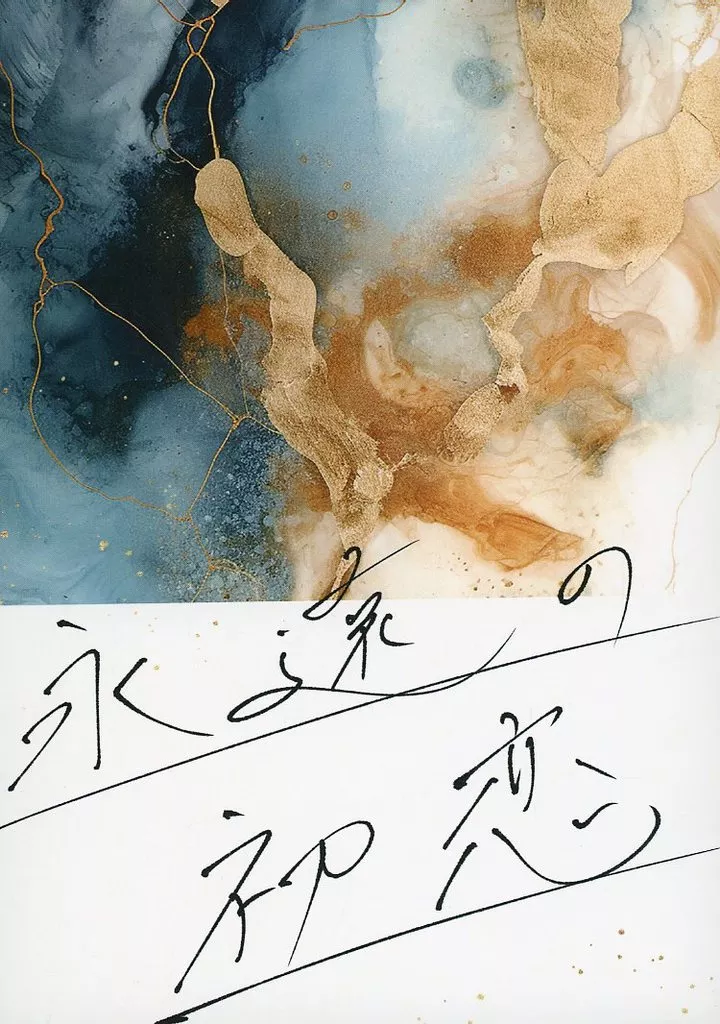 永遠の
初恋